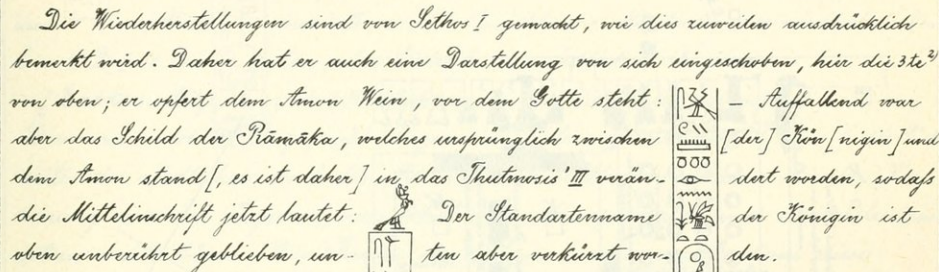 Die Wiederherstellungen sind von Sethos I gemacht, wie dies zuweilen ausdrücklich
bemerkt wird. Daher hat er auch eine Darstellung von sich eingeschoben, hier die 3te 2)
von oben; er opfert dem Amon Wein, vor dem Gotte steht: – Auffallend war
aber das Schild der Rāmāka, welches ursprünglich zwischen [der] Kön[nigin] und
dem Amon stand [, es ist daher] in das Thutmosis' III verän- dert worden, sodaß
die Mittelinschrift jetzt lautet: Der Standartenname der Königin ist
oben unberührt geblieben, un- ten aber verkürzt wor- den.